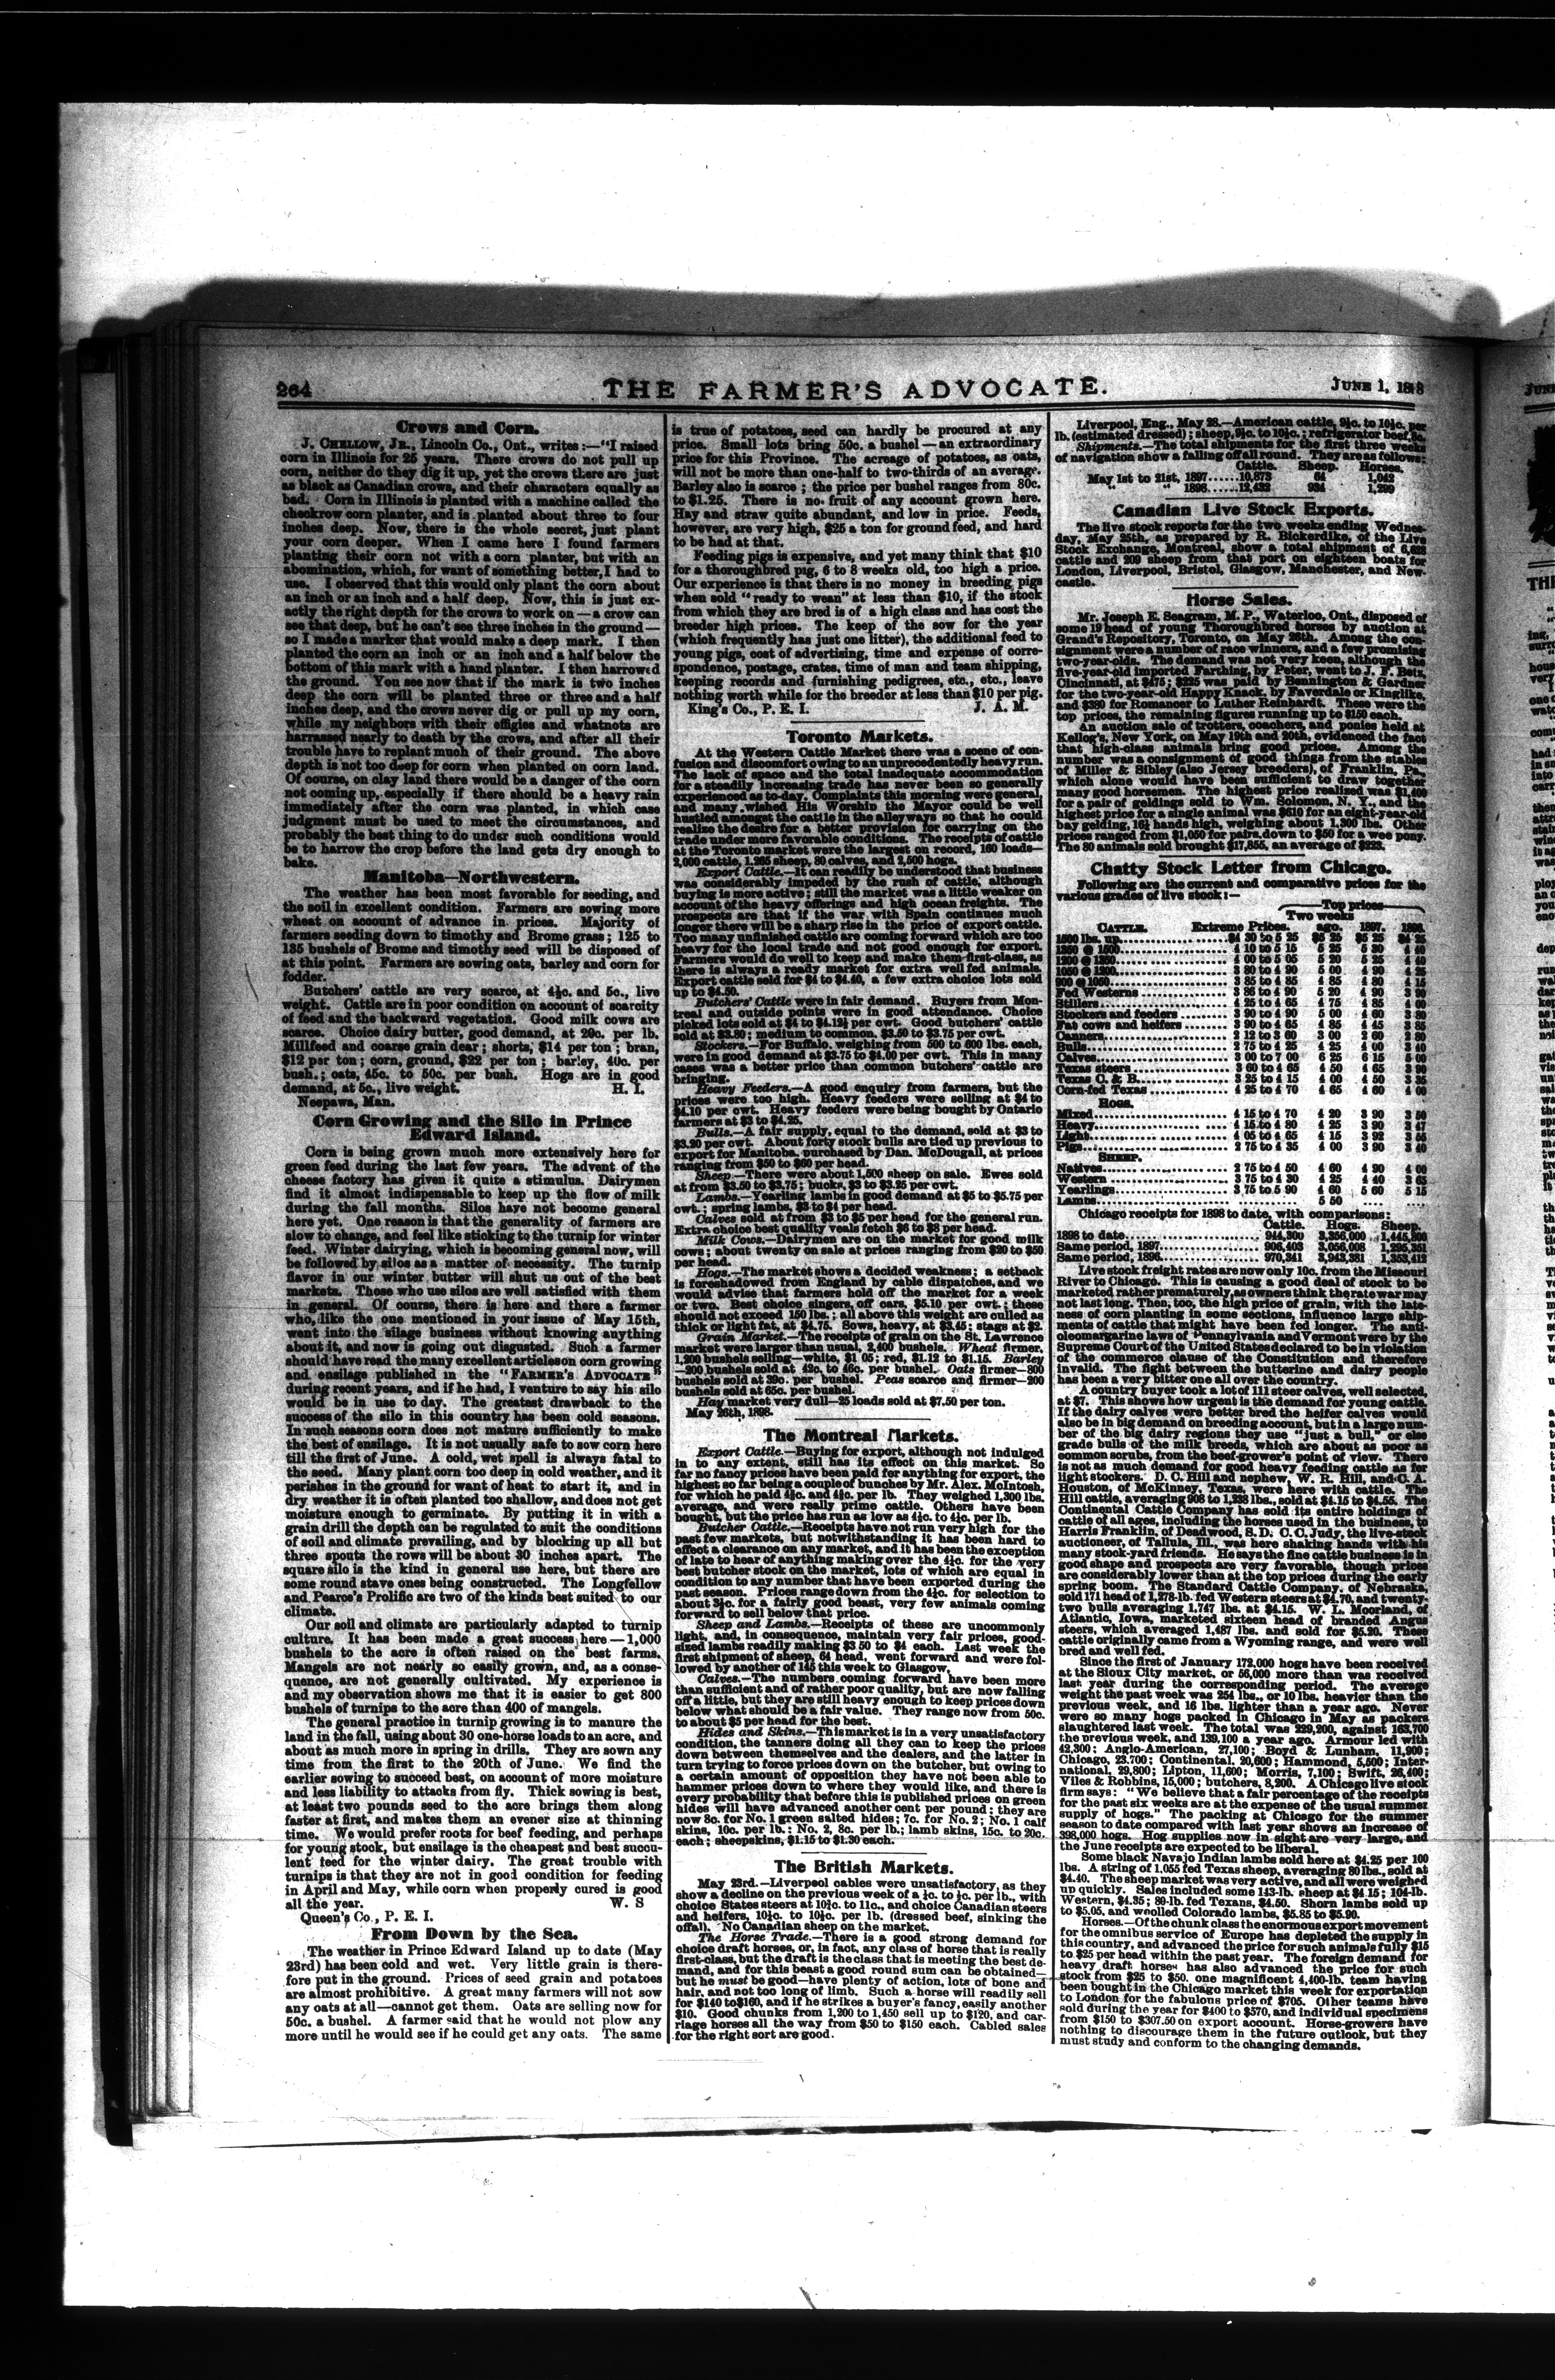 264
THE FARMER'S ADVOCATE.
JUNE 1, 1898
Crows and Corn.
J. CHELLOW, JR., Lincoln Co., Ont., writes:—"I raised
corn in Illinois for 25 years. There crows do not pull up
corn, neither do they dig it up, yet the crows there are just
as black as Canadian crows, and their characters equally as
bad. Corn in Illinois is planted with a machine called the
checkrow corn planter, and is planted about three to four
inches deep. Now, there is the whole secret, just plant
your corn deeper. When I came here I found farmers
planting their corn not with a corn planter, but with an
abomination, which, for want of something better, I had to
use. I observed that this would only plant the corn about
an inch or an inch and a half deep. Now, this is just ex-
actly the right depth for the crows to work on—a crow can
see that deep, but he can't see three inches in the ground—
so I made a marker that would make a deep mark. I then
planted the corn an inch or an inch and a half below the
bottom of this mark with a hand planter. I then harrowed
the ground. You see now that if the mark is two inches
deep the corn will be planted three or three and a half
inches deep, and the crows never dig or pull up my corn,
while my neighbors with their effigies and whatnots are
harrassed nearly to death by the crows, and after all their
trouble have to replant much of their ground. The above
depth is not too deep for corn when planted on corn land.
Of course, on clay land there would be a danger of the corn
not coming up, especially if there should be a heavy rain
immediately after the corn was planted, in which case
judgment must be used to meet the circumstances, and
probably the best thing to do under such conditions would
be to harrow the crop before the land gets dry enough to
bake.
Manitoba—Northwestern.
The weather has been most favorable for seeding, and
the soil in excellent condition. Farmers are sowing more
wheat on account of advance in prices. Majority of
farmers seeding down to timothy and Brome grass; 125 to
135 bushels of Brome and timothy seed will be disposed of
at this point. Farmers are sowing oats, barley and corn for
fodder.
Butchers' cattle are very scarce, at 4½c. and 5c., live
weight. Cattle are in poor condition on account of scarcity
of feed and the backward vegetation. Good milk cows are
scarce. Choice dairy butter, good demand, at 20c. per lb.
Millfeed and coarse grain dear; shorts, $14 per ton; bran,
$12 per ton; corn, ground, $22 per ton; barley, 40c. per
bush.; oats, 45c. to 50c. per bush. Hogs are in good
demand, at 5c., live weight. H. I.
Neepawa, Man.
Corn Growing and the Silo in Prince
Edward Island.
Corn is being grown much more extensively here for
green feed during the last few years. The advent of the
cheese factory has given it quite a stimulus. Dairymen
find it almost indispensable to keep up the flow of milk
during the fall months. Silos have not become general
here yet. One reason is that the generality of farmers are
slow to change, and feel like sticking to the turnip for winter
feed. Winter dairying, which is becoming general now, will
be followed by silos as a matter of necessity. The turnip
flavor in our winter butter will shut us out of the best
markets. Those who use silos are well satisfied with them
in general. Of course, there is here and there a farmer
who, like the one mentioned in your issue of May 15th,
went into the silage business without knowing anything
about it, and now is going out disgusted. Such a farmer
should have read the many excellent articles on corn growing
and ensilage published in the "FARMER'S ADVOCATE"
during recent years, and if he had, I venture to say his silo
would be in use to day. The greatest drawback to the
success of the silo in this country has been cold seasons.
In such seasons corn does not mature sufficiently to make
the best of ensilage. It is not usually safe to sow corn here
till the first of June. A cold, wet spell is always fatal to
the seed. Many plant corn too deep in cold weather, and it
perishes in the ground for want of heat to start it, and in
dry weather it is often planted too shallow, and does not get
moisture enough to germinate. By putting it in with a
grain drill the depth can be regulated to suit the conditions
of soil and climate prevailing, and by blocking up all but
three spouts the rows will be about 30 inches apart. The
square silo is the kind in general use here, but there are
some round stave ones being constructed. The Longfellow
and Pearce's Prolific are two of the kinds best suited to our
climate.
Our soil and climate are particularly adapted to turnip
culture. It has been made a great success here—1,000
bushels to the acre is often raised on the best farms.
Mangels are not nearly so easily grown, and, as a conse-
quence, are not generally cultivated. My experience is
and my observation shows me that it is easier to get 800
bushels of turnips to the acre than 400 of mangels.
The general practice in turnip growing is to manure the
land in the fall, using about 30 one-horse loads to an acre, and
about as much more in spring in drills. They are sown any
time from the first to the 20th of June. We find the
earlier sowing to succeed best, on account of more moisture
and less liability to attacks from fly. Thick sowing is best,
at least two pounds seed to the acre brings them along
faster at first, and makes them an evener size at thinning
time. We would prefer roots for beef feeding, and perhaps
for young stock, but ensilage is the cheapest and best succu-
lent feed for the winter dairy. The great trouble with
turnips is that they are not in good condition for feeding
in April and May, while corn when properly cured is good
all the year. W. S
Queen's Co., P. E. I.
From Down by the Sea.
The weather in Prince Edward Island up to date (May
23rd) has been cold and wet. Very little grain is there-
fore put in the ground. Prices of seed grain and potatoes
are almost prohibitive. A great many farmers will not sow
any oats at all—cannot get them. Oats are selling now for
50c. a bushel. A farmer said that he would not plow any
more until he would see if he could get any oats. The same
is true of potatoes, seed can hardly be procured at any
price. Small lots bring 50c. a bushel—an extraordinary
price for this Province. The acreage of potatoes, as oats,
will not be more than one-half to two-thirds of an average.
Barley also is scarce; the price per bushel ranges from 80c.
to $1.25. There is no fruit of any account grown here.
Hay and straw quite abundant, and low in price. Feeds,
however, are very high, $25 a ton for ground feed, and hard
to be had at that.
Feeding pigs is expensive, and yet many think that $10
for a thoroughbred pig, 6 to 8 weeks old, too high a price.
Our experience is that there is no money in breeding pigs
when sold "ready to wean" at less than $10, if the stock
from which they are bred is of a high class and has cost the
breeder high prices. The keep of the sow for the year
(which frequently has just one litter), the additional feed to
young pigs, cost of advertising, time and expense of corre-
spondence, postage, crates, time of man and team shipping,
keeping records and furnishing pedigrees, etc., etc., leave
nothing worth while for the breeder at less than $10 per pig.
King's Co., P. E. I. J. A. M.
Toronto Markets.
At the Western Cattle Market there was a scene of con-
fusion and discomfort owing to an unprecedentedly heavy run.
The lack of space and the total inadequate accommodation
for a steadily increasing trade has never been so generally
experienced as to-day. Complaints this morning were general,
and many wished His Worship the Mayor could be well
hustled amongst the cattle in the alleyways so that he could
realize the desire for a better provision for carrying on the
trade under more favorable conditions. The receipts of cattle
at the Toronto market were the largest on record, 160 loads—
2,000 cattle, 1,265 sheep, 80 calves, and 2,500 hogs.
Export Cattle.—It can readily be understood that business
was considerably impeded by the rush of cattle, although
buying is more active; still the market was a little weaker on
account of the heavy offerings and high ocean freights. The
prospects are that if the war with Spain continues much
longer there will be a sharp rise in the price of export cattle.
Too many unfinished cattle are coming forward which are too
heavy for the local trade and not good enough for export.
Farmers would do well to keep and make them first-class, as
there is always a ready market for extra well fed animals.
Export cattle sold for $4 to $4.40, a few extra choice lots sold
up to $4.50.
Butchers' Cattle were in fair demand. Buyers from Mon-
treal and outside points were in good attendance. Choice
picked lots sold at $4 to $4.12½ per cwt. Good butchers' cattle
sold at $3.80; medium to common, $3.50 to $3.75 per cwt.
Stockers.—For Buffalo, weighing from 500 to 600 lbs. each,
were in good demand at $3.75 to $4.00 per cwt. This in many
cases was a better price than common butchers' cattle are
bringing.
Heavy Feeders.—A good enquiry from farmers, but the
prices were too high. Heavy feeders were selling at $4 to
$4.10 per cwt. Heavy feeders were being bought by Ontario
farmers at $3 to $4.25.
Bulls.—A fair supply, equal to the demand, sold at $3 to
$3.20 per cwt. About forty stock bulls are tied up previous to
export for Manitoba, purchased by Dan. McDougall, at prices
ranging from $50 to $60 per head.
Sheep.—There were about 1,500 sheep on sale. Ewes sold
at from $3.50 to $3.75; bucks, $3 to $3.25 per cwt.
Lambs.—Yearling lambs in good demand at $5 to $5.75 per
cwt.; spring lambs, $3 to $4 per head.
Calves sold at from $3 to $5 per head for the general run.
Extra choice best quality veals fetch $6 to $8 per head.
Milk Cows.—Dairymen are on the market for good milk
cows; about twenty on sale at prices ranging from $20 to $50
per head.
Hogs.—The market shows a decided weakness; a setback
is foreshadowed from England by cable dispatches, and we
would advise that farmers hold off the market for a week
or two. Best choice singers, off cars, $5.10 per cwt.; these
should not exceed 150 lbs.; all above this weight are culled as
thick or light fat, at $4.75. Sows, heavy, at $3.45; stags at $2.
Grain Market.—The receipts of grain on the St. Lawrence
market were larger than usual, 2,400 bushels. Wheat firmer,
1,200 bushels selling—white, $1 05; red, $1.12 to $1.15. Barley
—200 bushels sold at 42c. to 46c. per bushel. Oats firmer—800
bushels sold at 39c. per bushel. Peas scarce and firmer—200
bushels sold at 65c. per bushel.
Hay market very dull—25 loads sold at $7.50 per ton.
May 26th, 1898.
The Montreal Markets.
Export Cattle.—Buying for export, although not indulged
in to any extent, still has its effect on this market. So
far no fancy prices have been paid for anything for export, the
highest so far being a couple of bunches by Mr. Alex. McIntosh,
for which he paid 4¾c. and 4½c. per lb. They weighed 1,300 lbs.
average, and were really prime cattle. Others have been
bought, but the price has run as low as 4¼c. to 4½c. per lb.
Butcher Cattle.—Receipts have not run very high for the
past few markets, but notwithstanding it has been hard to
effect a clearance on any market, and it has been the exception
of late to hear of anything making over the 4½c. for the very
best butcher stock on the market, lots of which are equal in
condition to any number that have been exported during the
past season. Prices range down from the 4½c. for selection to
about 3½c. for a fairly good beast, very few animals coming
forward to sell below that price.
Sheep and Lambs.—Receipts of these are uncommonly
light, and, in consequence, maintain very fair prices, good-
sized lambs readily making $3 50 to $4 each. Last week the
first shipment of sheep, 64 head, went forward and were fol-
lowed by another of 145 this week to Glasgow.
Calves.—The numbers coming forward have been more
than sufficient and of rather poor quality, but are now falling
off a little, but they are still heavy enough to keep prices down
below what should be a fair value. They range now from 50c.
to about $5 per head for the best.
Hides and Skins.—This market is in a very unsatisfactory
condition, the tanners doing all they can to keep the prices
down between themselves and the dealers, and the latter in
turn trying to force prices down on the butcher, but owing to
a certain amount of opposition they have not been able to
hammer prices down to where they would like, and there is
every probability that before this is published prices on green
hides will have advanced another cent per pound; they are
now 8c. for No. 1 green salted hides; 7c. for No. 2; No. 1 calf
skins, 10c. per lb.; No. 2, 8c. per lb.; lamb skins, 15c. to 20c.
each; sheepskins, $1.15 to $1.30 each.
The British Markets.
May 23rd.—Liverpool cables were unsatisfactory, as they
show a decline on the previous week of a ¼c. to ½c. per lb., with
choice States steers at 10½c. to 11c., and choice Canadian steers
and heifers, 10¼c. to 10½c. per lb. (dressed beef, sinking the
offal). No Canadian sheep on the market.
The Horse Trade.—There is a good strong demand for
choice draft horses, or, in fact, any class of horse that is really
first-class, but the draft is the class that is meeting the best de-
mand, and for this beast a good round sum can be obtained—
but he must be good—have plenty of action, lots of bone and
hair, and not too long of limb. Such a horse will readily sell
for $140 to $160, and if he strikes a buyer's fancy, easily another
$10. Good chunks from 1,200 to 1,450 sell up to $120, and car-
riage horses all the way from $50 to $150 each. Cabled sales
for the right sort are good.
Liverpool, Eng., May 28.—American cattle, 9½c. to 10½c. per
lb. (estimated dressed); sheep, 9½c. to 10½c.; refrigerator beef, 8c.
Shipments.—The total shipments for the first three weeks
of navigation show a falling off all round. They are as follows:
Cattle. Sheep. Horses.
May 1st to 21st, 1897......10,873 64 1,042
" " 1898......12,432 934 1,299
Canadian Live Stock Exports.
The live stock reports for the two weeks ending Wednes-
day, May 25th, as prepared by R. Bickerdike, of the Live
Stock Exchange, Montreal, show a total shipment of 6,628
cattle and 209 sheep from that port on eighteen boats for
London, Liverpool, Bristol, Glasgow, Manchester, and New-
castle.
Horse Sales.
Mr. Joseph E. Seagram, M. P., Waterloo, Ont., disposed of
some 19 head of young Thoroughbred horses by auction at
Grand's Repository, Toronto, on May 26th. Among the con-
signment were a number of race winners, and a few promising
two-year-olds. The demand was not very keen, although the
five-year-old imported Farthing, by Peter, went to J. F. Betz,
Cincinnati, at $475; $225 was paid by Bennington & Gardner
for the two-year-old Happy Knack, by Faverdale or Kinglike,
and $380 for Romancer to Luther Reinhardt. These were the
top prices, the remaining figures running up to $150 each.
An auction sale of trotters, coachers, and ponies held at
Kellog's, New York, on May 19th and 20th, evidenced the fact
that high-class animals bring good prices. Among the
number was a consignment of good things from the stables
of Miller & Sibley (also Jersey breeders), of Franklin, Pa.,
which alone would have been sufficient to draw together
many good horsemen. The highest price realized was $1,400
for a pair of geldings sold to Wm. Solomon, N. Y., and the
highest price for a single animal was $610 for an eight-year-old
bay gelding, 16½ hands high, weighing about 1,200 lbs. Other
prices ranged from $1,050 for pairs, down to $50 for a wee pony.
The 80 animals sold brought $17,855, an average of $223.
Chatty Stock Letter from Chicago.
Following are the current and comparative prices for the
various grades of live stock:—
Top prices
Two weeks
CATTLE. Extreme Prices. ago. 1897. 1896.
1500 lbs. up.... $4 30 to 5 25 $5 25 $5 25 $4 25
1350 @ 1500.... 4 10 to 5 15 5 25 5 30 4 40
1200 @ 1350.... 4 00 to 5 05 5 20 5 25 4 40
1050 @ 1200.... 3 80 to 4 90 5 00 4 90 4 25
900 @ 1050.... 3 85 to 4 85 4 85 4 80 4 15
Fed Westerns.... 3 86 to 4 90 5 20 4 90 3 90
Stillers.... 4 25 to 4 65 4 75 4 85 4 00
Stockers and feeders.... 3 90 to 4 90 5 00 4 60 3 80
Fat cows and heifers.... 3 90 to 4 65 4 85 4 45 3 85
Canners.... 2 12 to 3 60 3 00 2 60 2 80
Bulls.... 2 75 to 4 25 4 25 4 00 3 40
Calves.... 3 00 to 7 00 6 25 6 15 5 00
Texas steers.... 3 60 to 4 65 4 50 4 65 3 90
Texas C. & B.... 3 25 to 4 15 4 00 4 50 3 35
Corn-fed Texas.... 4 25 to 4 70 4 65 4 60 4 00
HOGS.
Mixed.... 4 15 to 4 70 4 20 3 90 3 50
Heavy.... 4 15 to 4 80 4 25 3 90 3 47
Light.... 4 05 to 4 65 4 15 3 92 3 55
Pigs.... 2 75 to 4 35 4 00 3 90 3 40
SHEEP.
Natives.... 2 75 to 4 50 4 60 4 90 4 00
Western.... 3 75 to 4 30 4 25 4 40 3 65
Yearlings.... 3 75 to 5 90 4 60 5 60 5 15
Lambs.... 5 50 ....
Chicago receipts for 1898 to date, with comparisons:
Cattle. Hogs. Sheep.
1898 to date.... 944,300 3,356,000 1,445,800
Same period, 1897.... 906,403 3,056,008 1,295,351
Same period, 1896.... 970,341 2,943,381 1,353,412
Live stock freight rates are now only 10c. from the Missouri
River to Chicago. This is causing a good deal of stock to be
marketed rather prematurely, as owners think the rate war may
not last long. Then, too, the high price of grain, with the late-
ness of corn planting in some sections, influence large ship-
ments of cattle that might have been fed longer. The anti-
oleomargarine laws of Pennsylvania and Vermont were by the
Supreme Court of the United States declared to be in violation
of the commerce clause of the Constitution and therefore
invalid. The fight between the butterine and dairy people
has been a very bitter one all over the country.
A country buyer took a lot of 111 steer calves, well selected,
at $7. This shows how urgent is the demand for young cattle.
If the dairy calves were better bred the heifer calves would
also be in big demand on breeding account, but in a large num-
ber of the big dairy regions they use "just a bull," or else
grade bulls of the milk breeds, which are about as poor as
common scrubs, from the beef-grower's point of view. There
is not as much demand for good heavy feeding cattle as for
light stockers. D. C. Hill and nephew, W. R. Hill, and C. A.
Houston, of McKinney, Texas, were here with cattle. The
Hill cattle, averaging 908 to 1,238 lbs., sold at $4.15 to $4.55. The
Continental Cattle Company has sold its entire holdings of
cattle of all ages, including the horses used in the business, to
Harris Franklin, of Deadwood, S. D. C. C. Judy, the live-stock
auctioneer, of Tallula, Ill., was here shaking hands with his
many stock-yard friends. He says the fine cattle business is in
good shape and prospects are very favorable, though prices
are considerably lower than at the top prices during the early
spring boom. The Standard Cattle Company, of Nebraska,
sold 171 head of 1,278-lb. fed Western steers at $4.70, and twenty-
two bulls averaging 1,747 lbs. at $4.15. W. L. Moorland, of
Atlantic, Iowa, marketed sixteen head of branded Angus
steers, which averaged 1,487 lbs. and sold for $5.20. These
cattle originally came from a Wyoming range, and were well
bred and well fed.
Since the first of January 172,000 hogs have been received
at the Sioux City market, or 56,000 more than was received
last year during the corresponding period. The average
weight the past week was 254 lbs., or 10 lbs. heavier than the
previous week, and 16 lbs. lighter than a year ago. Never
were so many hogs packed in Chicago in May as packers
slaughtered last week. The total was 229,200, against 163,700
the previous week, and 139,100 a year ago. Armour led with
42,300; Anglo-American, 27,100; Boyd & Lunham, 11,900;
Chicago, 23,700; Continental, 20,600; Hammond, 5,500; Inter-
national, 29,800; Lipton, 11,600; Morris, 7,100; Swift, 26,400;
Viles & Robbins, 15,000; butchers, 8,200. A Chicago live stock
firm says: "We believe that a fair percentage of the receipts
for the past six weeks are at the expense of the usual summer
supply of hogs." The packing at Chicago for the summer
season to date compared with last year shows an increase of
398,000 hogs. Hog supplies now in sight are very large, and
the June receipts are expected to be liberal.
Some black Navajo Indian lambs sold here at $4.25 per 100
lbs. A string of 1,055 fed Texas sheep, averaging 80 lbs., sold at
$4.40. The sheep market was very active, and all were weighed
up quickly. Sales included some 143-lb. sheep at $4 15; 104-lb.
Western, $4.35; 80-lb. fed Texans, $4.50. Shorn lambs sold up
to $5.05, and woolled Colorado lambs, $5.85 to $5.90.
Horses.—Of the chunk class the enormous export movement
for the omnibus service of Europe has depleted the supply in
this country, and advanced the price for such animals fully $15
to $25 per head within the past year. The foreign demand for
heavy draft horses has also advanced the price for such
stock from $25 to $50, one magnificent 4,400-lb. team having
been bought in the Chicago market this week for exportation
to London for the fabulous price of $705. Other teams have
sold during the year for $400 to $570, and individual specimens
from $150 to $307.50 on export account. Horse-growers have
nothing to discourage them in the future outlook, but they
must study and conform to the changing demands.